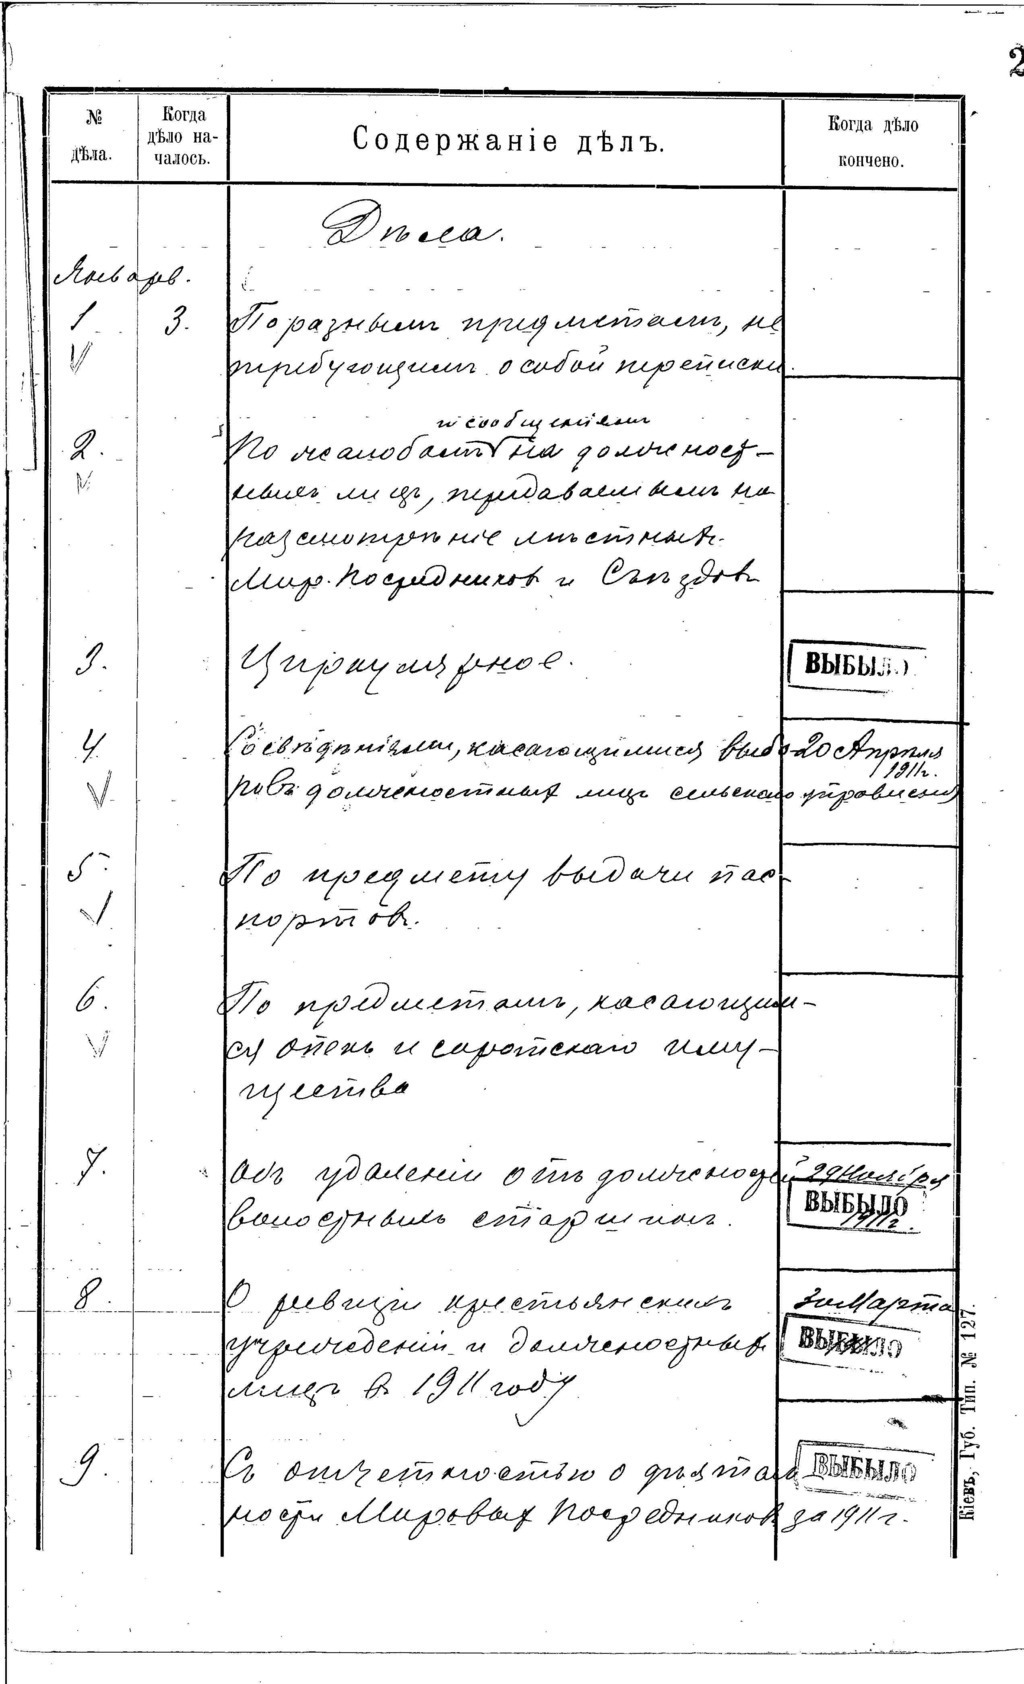 2
№ дѣла.
Когда дѣло на-
чалось.
Содержаніе дѣлъ.
Когда дѣло
кончено.
Дѣла.
Январь.
1 3. По разнымъ предметамъ, не
требующимъ особой переписки.
и сообщеніямъ
2. По жалобамъ на должност-
ныхъ лицъ, передаваемымъ на
разсмотрѣніе мѣстныхъ
Мир. Посредниковъ и Съѣздовъ
3. Циркулярное. ВЫБЫЛО
4. Со свѣдѣніями, касающимися выбо- 20 Апрѣля
1911г.
ровъ должностныхъ лицъ сельскаго управленія
5. По предмету выдачи пас-
портовъ.
6. По предметамъ, касающим-
ся опекъ и сиротскаго иму-
щества
7. Объ удаленіи отъ должностей 29 Ноября
ВЫБЫЛО
волостныхъ старшинъ. 1911г.
8. О ревизіи крестьянскихъ 30 Марта
учрежденій и должностныхъ ВЫБЫЛО
лицъ въ 1911 году
9. Съ отчетностью о дѣятель ВЫБЫЛО
ности Мировыхъ Посредниковъ за 1911 г.
Кіевъ, Губ. Тип. № 127.